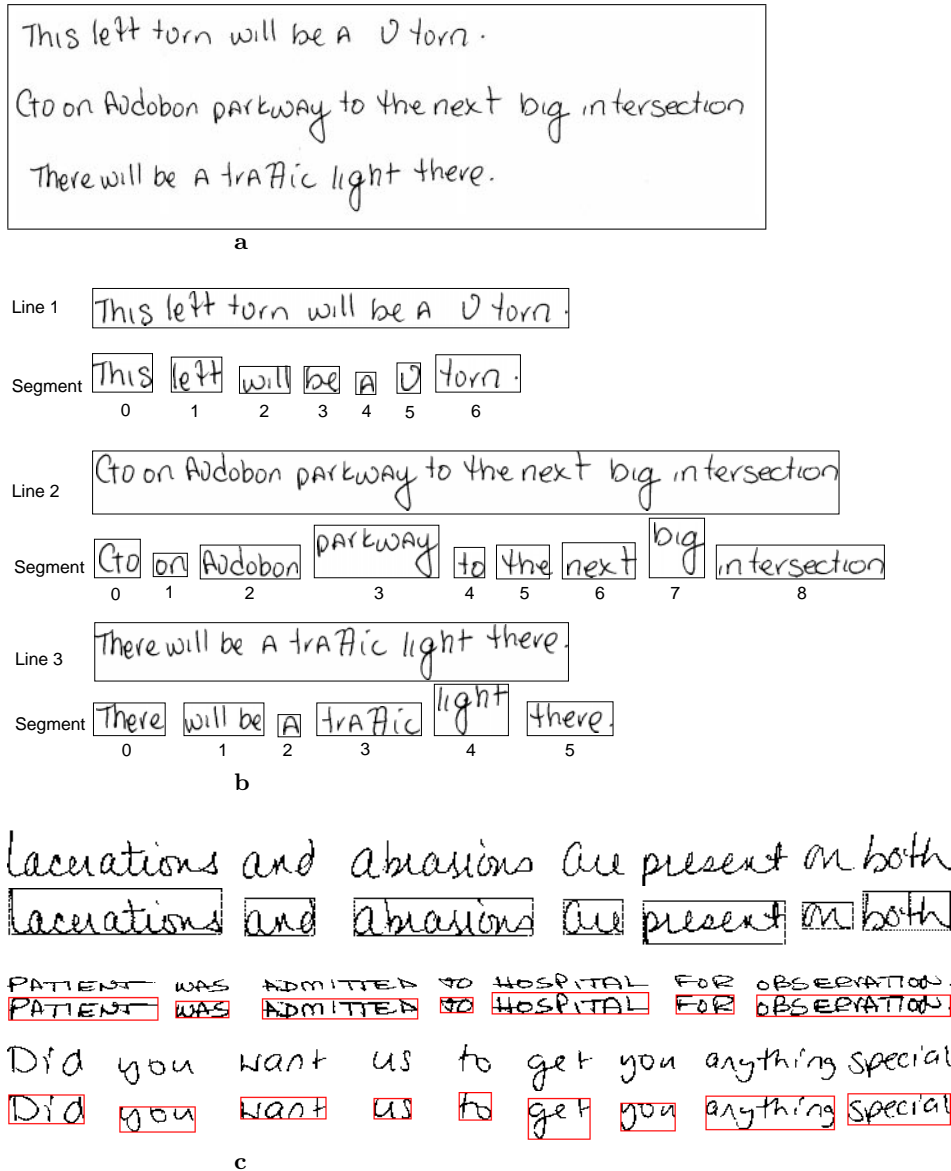 This left torn will be A U torn.
Go on Audobon pARkwAy to the next big intersection
There will be A trAffic light there.
a
Line 1 This left torn will be A U torn.
Segment This left will be A U torn.
0 1 2 3 4 5 6
Line 2 Go on Audobon pARkwAy to the next big intersection
Segment Go on Audobon pARkwAy to the next big intersection
0 1 2 3 4 5 6 7 8
Line 3 There will be A trAffic light there.
Segment There will be A trAffic light there.
0 1 2 3 4 5
b
Lacerations and abrasions are present on both
Lacerations and abrasions are present on both
PATIENT WAS ADMITTED TO HOSPITAL FOR OBSERVATION.
PATIENT WAS ADMITTED TO HOSPITAL FOR OBSERVATION.
Did you want us to get you anything special
Did you want us to get you anything special
c